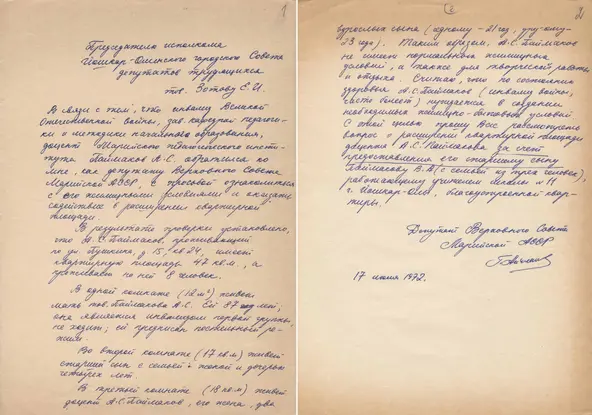 1
Председателю исполкома
Йошкар-Олинского городского Совета
депутатов трудящихся
тов. Зотову Е.И.
В связи с тем, что инвалид Великой
Отечественной войны, зав. кафедрой педагоги-
ки и методики начального образования,
доцент Марийского педагогического инсти-
тута Паймаков А.С. обратился ко
мне, как депутату Верховного Совета
Марийской АССР, с просьбой ознакомиться
с его жилищными условиями и оказать
содействие в расширении квартирной
площади.
В результате проверки установлено,
что А.С. Паймаков, проживающий
по ул. Пушкина, д. 15, кв 24, имеет
квартирную площадь 47 кв.м, а
проживает на ней 8 человек.
В одной комнате (12 м²) живет
мать тов. Паймакова А.С. Ей 87 лет;
она является инвалидом первой группы,
не ходит; ей предписан постельный ре-
жим.
Во второй комнате (17 кв.м) живет
старший сын с семьей: женой и дочерью
четырех лет.
В третьей комнате (18 кв.м) живет
доцент А.С. Паймаков, его жена, два
2
взрослых сына (одному - 21 год, друго-му-
23 года). Таким образом, А.С. Паймаков
не имеет нормальных жилищных
условий, а также для творческой работы
и отдыха. Считаю, что по состоянию
здоровья А.С. Паймаков (инвалид войны,
часто болеет) нуждается в создании
необходимых жилищно-бытовых условий.
С этой целью прошу Вас рассмотреть
вопрос о расширении квартирной площади
доцента А.С. Паймакова за счет
предоставления его старшему сыну
Паймакову В.А. (с семьей из трех человек),
работающему учителем школы № 11
г. Йошкар-Олы, благоустроенной квар-
тиры.
Депутат Верховного Совета
Марийской АССР
17 июня 1972.